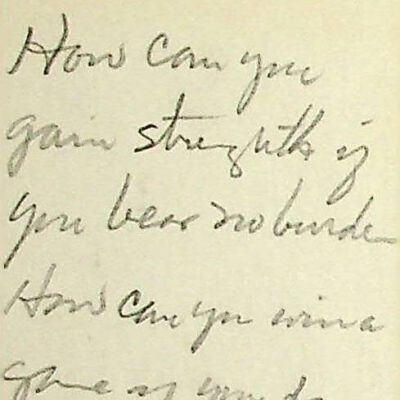 How can you
gain strength if
you bear no burden
How can you win a
game if you do